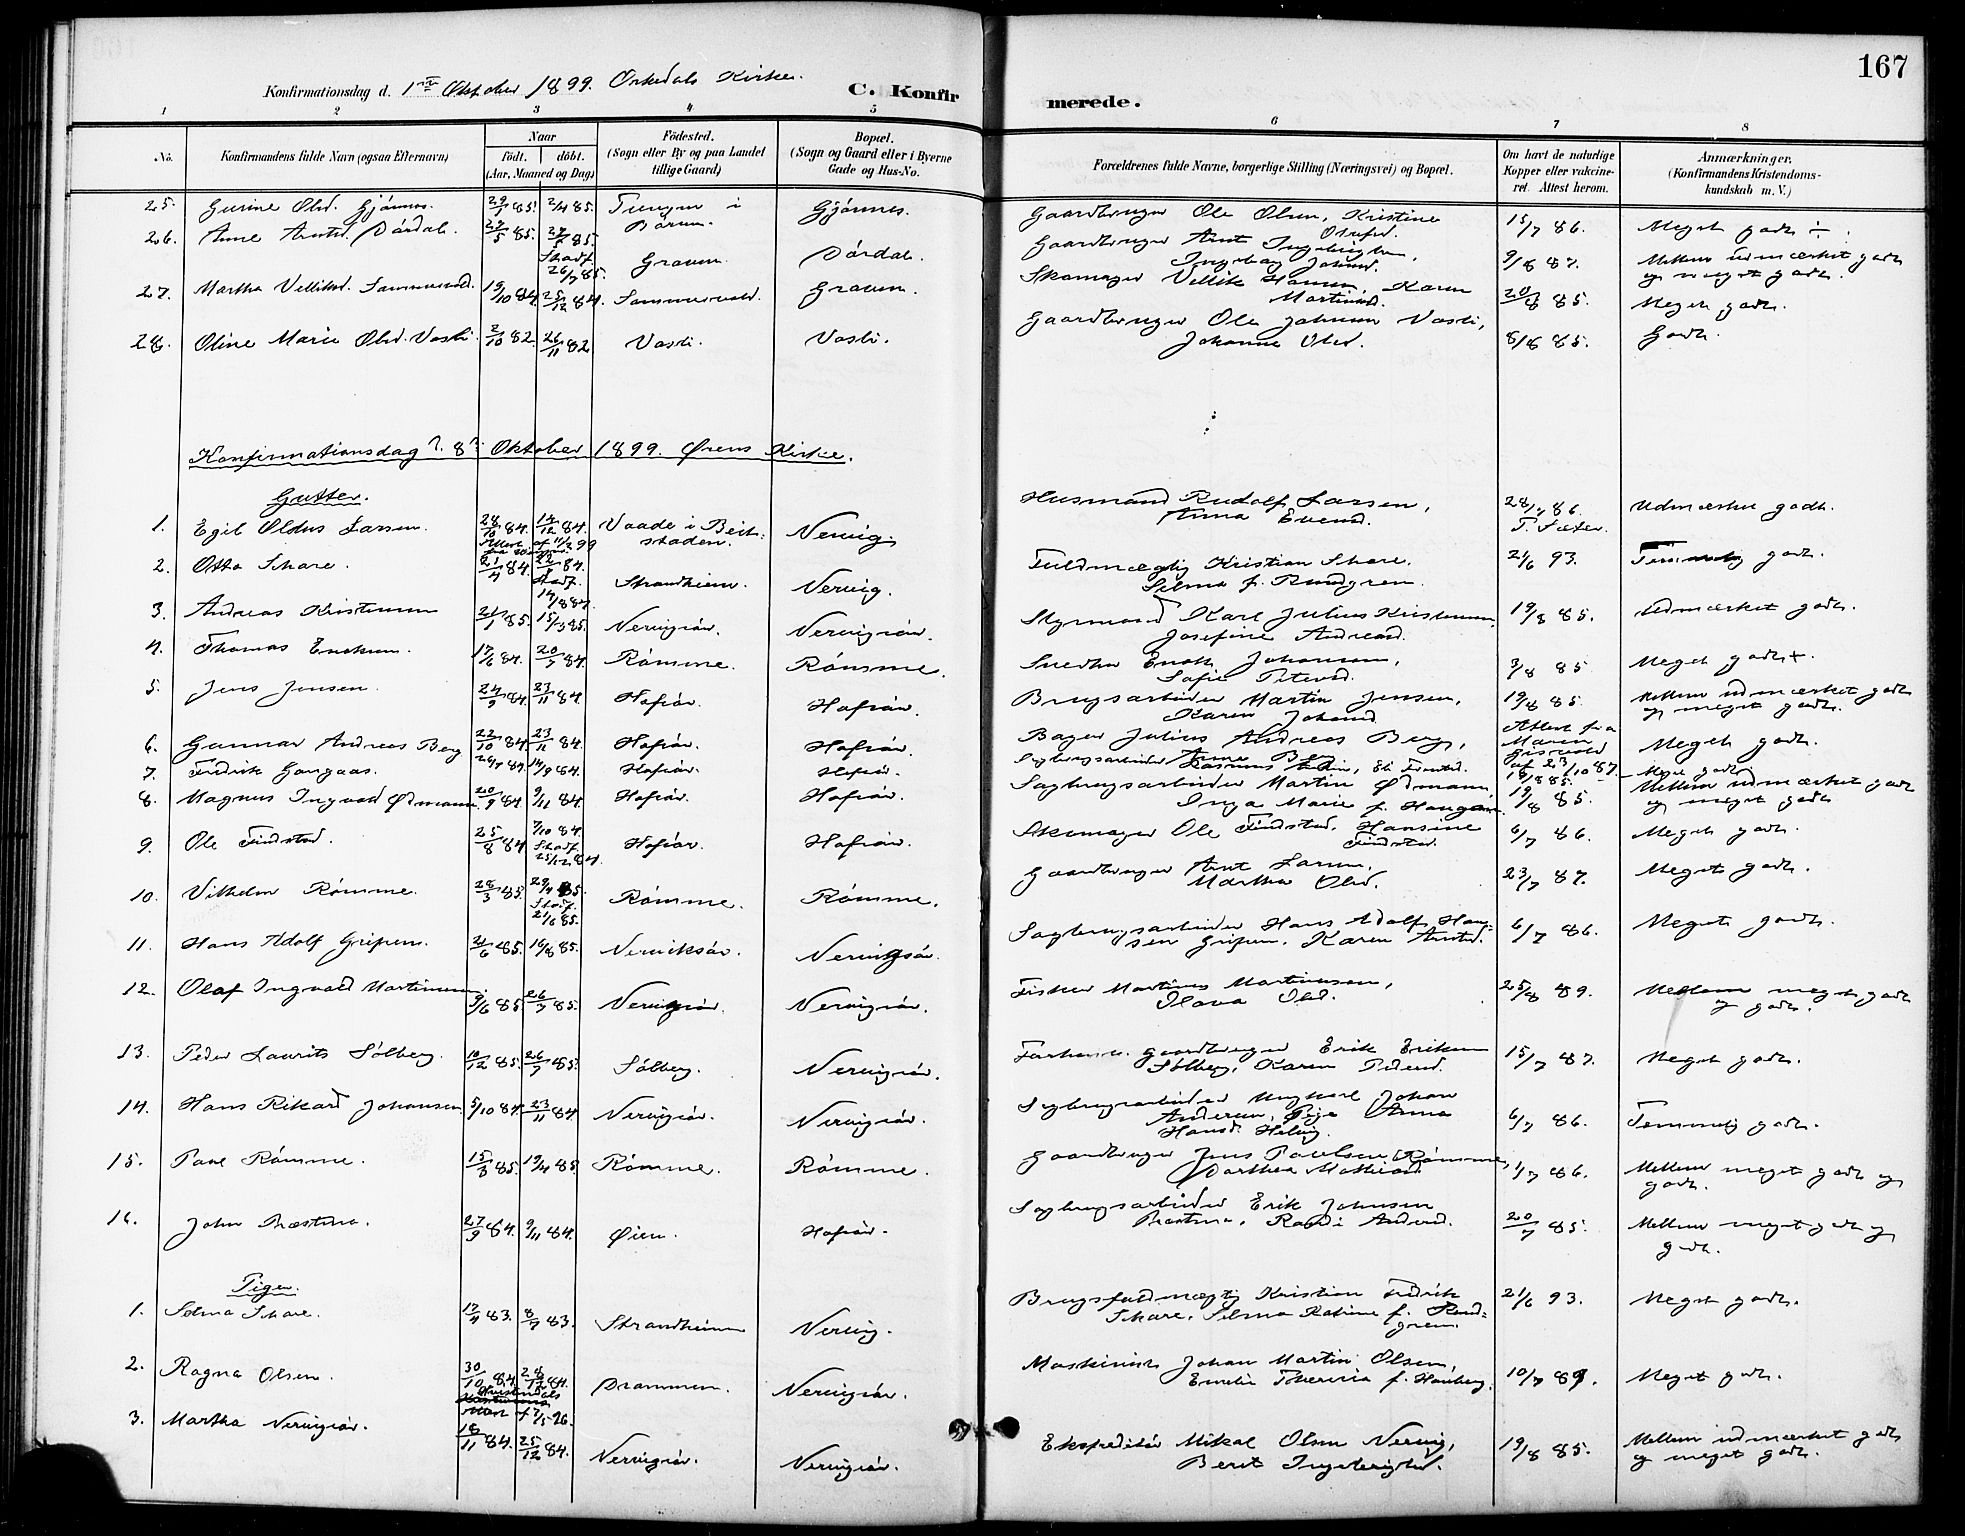 167
Konfirmationsdag d. 1ste Oktober 1899. Orkedals Kirke.
C. Konfirmerede.
1 2 3 4 5 6 7 8
No.
Konfirmandens fulde Navn (ogsaa Efternavn)
Naar
født. døbt.
(Aar, Maaned og Dag)
Fødested.
(Sogn eller By og paa Landet
tillige Gaard)
Bopæl.
(Sogn og Gaard eller i Byerne
Gade og Hus-No.
Forældrenes fulde Navne, borgerlige Stilling (Næringsvei) og Bopæl.
Om havt de naturlige
Kopper eller vakcine-
ret. Attest herom.
Anmærkninger.
(Konfirmandens Kristendoms-
kundskab m. V.)
25. Gurine Olsd. Gjønnes. 85. 2/4 85. i Børsen. Gjønnes. Gaardbruger Ole Olsen, Kristine Olsd. 15/7 86. Meget godt ÷.
26. Anne Arntsd. Dørdal. 85. 85. Stadf. 26/7 85. Graum. Dørdal. Gaardbruger Arnt Ingebrigtsen, Ingeborg Johnsd. 9/8 87. Mellem udmærket godt og meget godt.
27. Martha Velliksd. 19/10 84. 25/12 84. Graum. Skomager Vellik Hansen, Karen Martinsd. 20/8 85. Meget godt.
28. Oline Marie Olsd. Vasli. 2/10 82. 26/11 82. Vasli. Vasli. Gaardbruger Ole Johnsen Vasli, Johanna Olsd. 8/8 85. Godt.
Konfirmationsdag d. 8de Oktober 1899. Ørens Kirke.
Gutter.
1. Egil Oldus Larsen. 28/10 84. 14/12 84. Attest af 11/2 99 Vaade i Beitstaden. Nervig. Husmand Rudolf Larsen, Anna Evensd. 28/7 86. Udmærket godt.
2. Otto Skare. 21/4 84. 84. Stadf. 14/8 87. Strandheim. Nervig. Fuldmægtig Kristian Skare, Selma f. Rundgren. 21/6 93. Temmelig godt.
3. Andreas Kristensen 21/1 85. 15/3 85. Nervigsør. Nervigsør. Styrmand Karl Julius Kristensen, Josefine Andreasd. 19/8 85. Udmærket godt.
4. Thomas Enoksen. 17/6 84. 20/7 84. Rømme. Rømme. Snedker Enok Johansen, Sofie Petersd. 3/8 85 Meget godt +.
5. Jens Jensen. 24/9 84. 23/11 84. Hofsør. Hofsør. Brugsarbeider Martin Jensen, Karen Johansd. 19/8 85. Mellem udmærket godt og meget godt.
6. Gunnar Andreas Berg 22/10 84. 23/11 84. Hofsør. Hofsør. Bager Julius Andreas Berg, Anne Berg. Attest fra Maren af 23/10 87. Meget godt.
7. Fredrik Haugaas. 26/7 84. 14/9 84. Hofsør. Hofsør. Sagbrugsarbeider 18/8 85. Meget godt.
8. Magnus Ingvald Ødmann. 20/9 84. 9/11 84. Hofsør. Hofsør. Sagbrugsarbeider Martin Ødmann, Inga Marie f. Haugan. 19/8 85. Mellem udmærket godt og meget godt.
9. Ole Findstad. 25/8 84. 7/10 84. Stadf. 25/12 84. Hofsør. Hofsør. Skomager Ole Findstad, Hansine Findstad. 6/7 86. Meget godt.
10. Vilhelm Rømme. 28/3 85. 29/4 85. Stadf. 21/6 85. Rømme. Rømme. Gaardbruger Arnt Larsen, Martha Olsd. 23/7 87. Meget godt.
11. Hans Adolf Gripen. 2/6 85. 16/8 85. Nerviksør. Nervigsør. Sagbrugsarbeider Hans Adolf Hansen Gripen, Karen Arntsd. 6/7 86. Meget godt.
12. Olaf Ingvald Martinsen. 9/6 85. 26/7 85. Nervigsør. Nervigsør. Fisker Martinus Martinussen, Olava Olsd. 25/8 89. Mellem meget godt og godt.
13. Peder Laurits Sølberg. 10/12 85. 26/7 85. Sølberg. Nervigsør. Forhenv. gaardbruger Erik Eriksen Sølberg, Karen Pedersd. 15/7 87. Meget godt.
14. Hans Rikard Johansen 5/10 84. 23/11 84. Nervigsør. Nervigsør. Sagbrugsarbeider Ungkarl Johan Andersen, Pige Anna Hansd. Helvig. 6/7 86. Temmelig godt.
15. Paul Rømme. 15/3 85. 19/4 85 Rømme. Rømme. Gaardbruger Jens Paulsen Rømme, Dorthea Mathiasd. 1/7 86. Mellem meget godt og godt.
16. John Præstmo. 27/9 84. 9/11 84. Øien. Hofsør. Sagbrugsarbeider Erik Johnsen Præstmo, Randi Andersd. 20/7 85. Mellem meget godt og godt.
Piger.
1. Selma Skare. 17/4 83. 8/7 83. Strandheim Nervig. Brugsfuldmægtig Kristian Fredrik Skare, Selma Katrine f. Rundgren. 21/6 93. Meget godt.
2. Ragna Olsen. 30/10 84. 28/12 84. Drammen. Nervigsør. Maskinist Johan Martin Olsen, Emelie Theresia f. Hamberg. 10/7 89. Meget godt.
3. Martha Nervigsør. 18/11 84. 25/12 84. Nervigsør. Nervigsør. Ekspeditør Mikal Olsen Nervig, Berit Ingebrigtsd. 19/8 85. Mellem udmærket godt og meget godt.